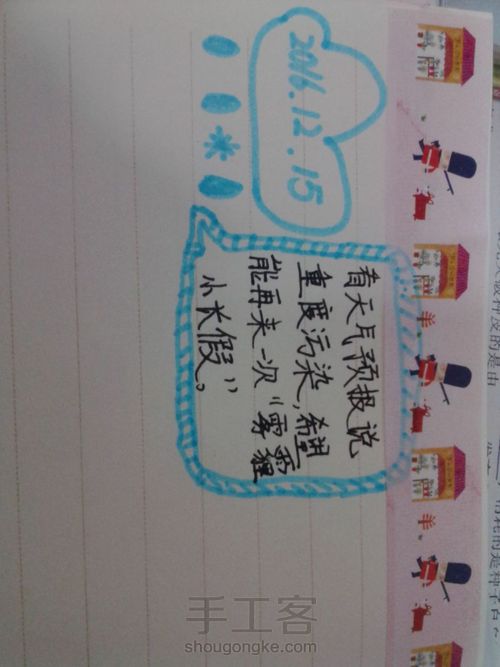 2016.12.15
看天气预报说
重度污染,希望
能再来一次“雾霾
小长假”。
手工客
shougongke.com